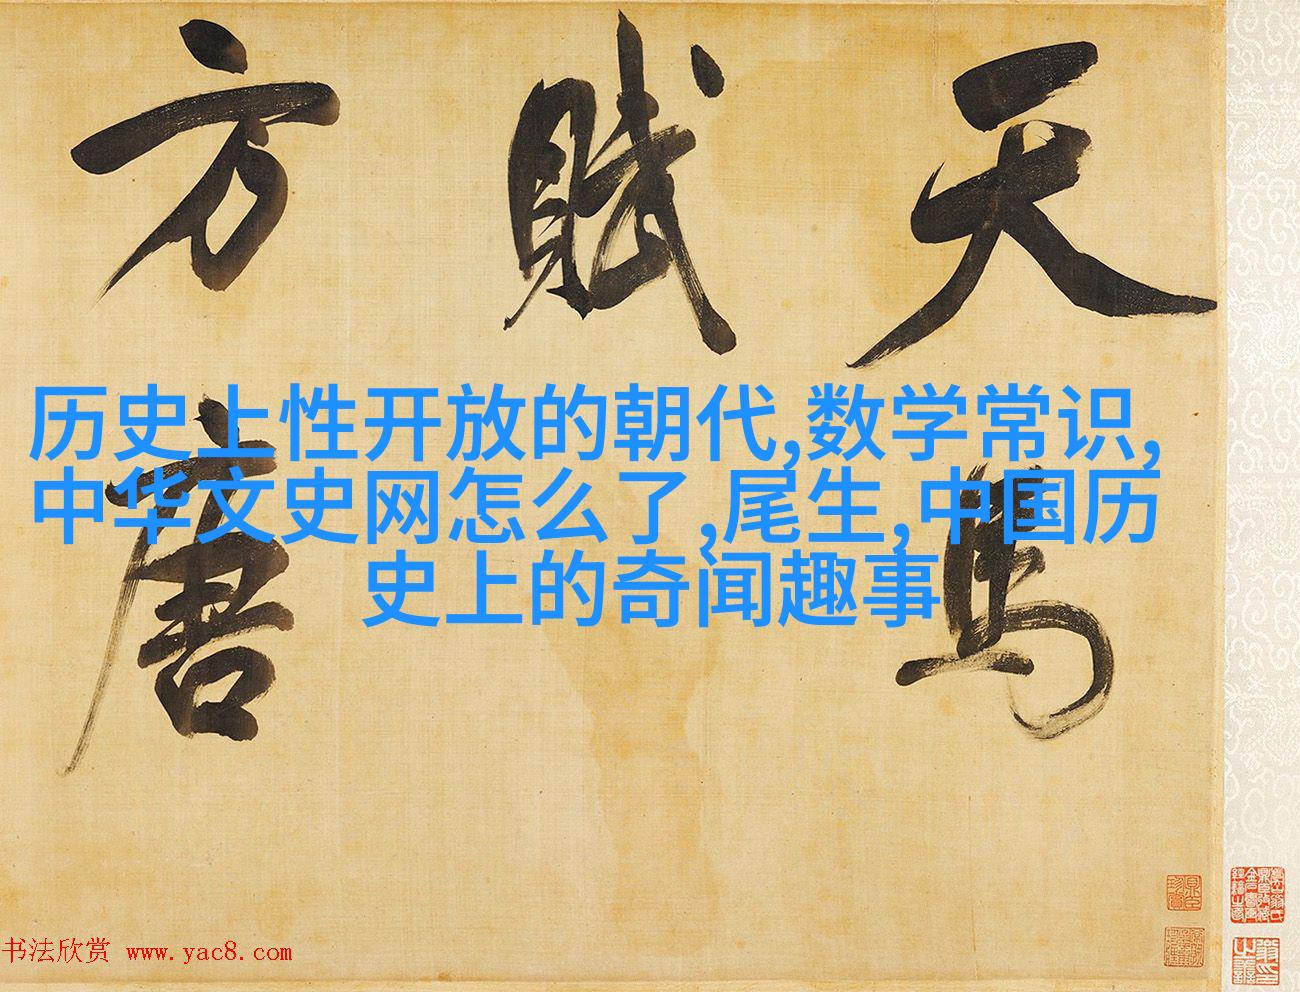 天馬
賦
方唐
历史上性开放的朝代,数学常识,
中华文史网怎么了,尾生,中国历
史上的奇闻趣事
书法欣赏 www.yac8.com